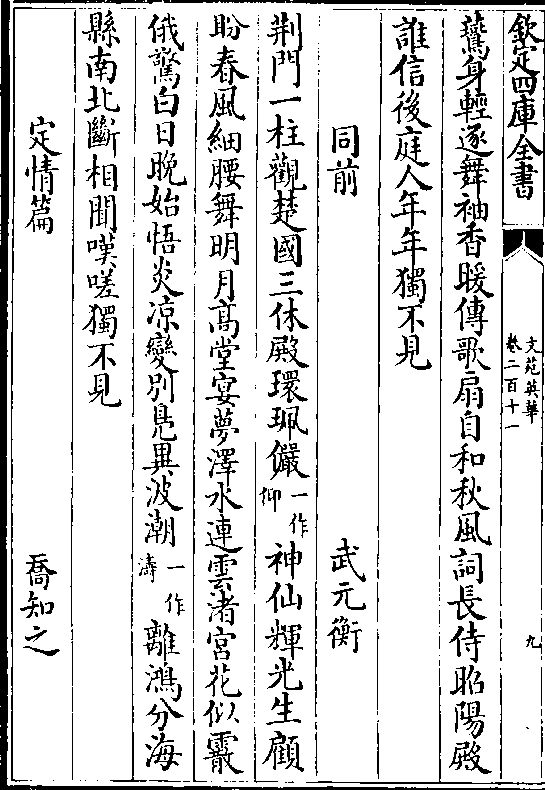 欽定四庫全書
文苑英華
卷二百十一
九
鸞身輕逐舞袖香暖傳歌扇自和秋風詞長侍昭陽殿
誰信後庭人年年獨不見
同前 武元衡
荆門一柱觀楚國三休殿環珮儼一作仰神仙輝光生顧
盼春風細腰舞明月髙堂宴夢澤水連雲渚宮花似霰
俄驚白日晚始悟炎凉變別㠯異波潮一作濤離鴻分海
縣南北斷相聞嘆嗟獨不見
定情篇 喬知之